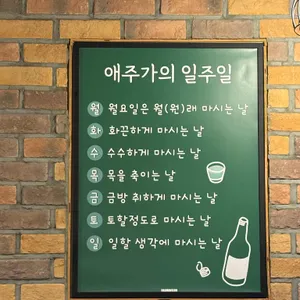 애주가의 일주일
월 월요일은 월(원)래 마시는 날
화 화끈하게 마시는 날
수 수수하게 마시는 날
목 목을 축이는 날
금 금방 취하게 마시는 날
토 토할정도로 마시는 날
일 일할 생각에 마시는 날